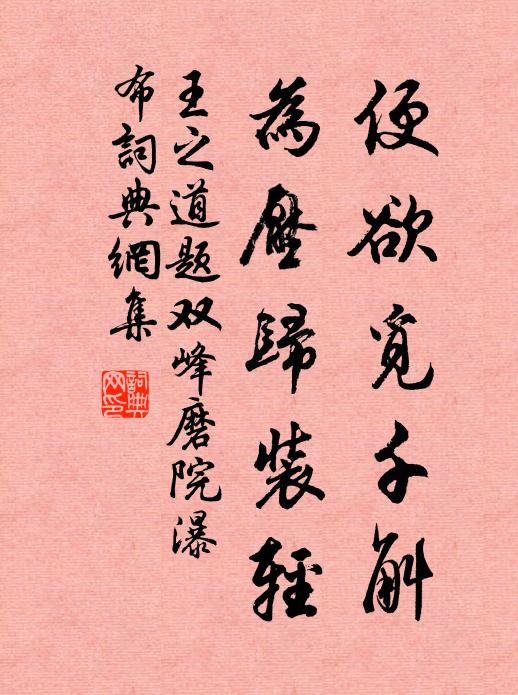 便欲覓千斛
為壓歸裝輕
王之道題双峰磨院瀑
布詞典網集
詞典
网印